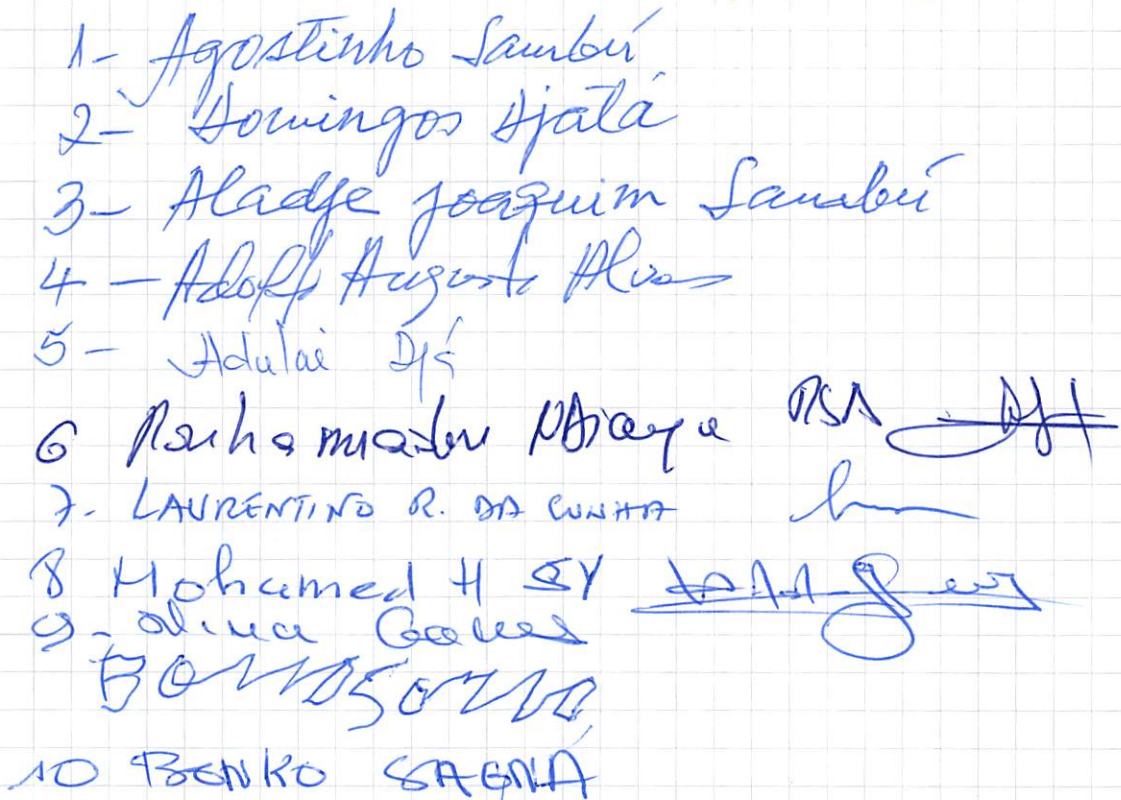 1- Agostinho Sambú
2- Domingos Djatá
3- Aladje Joaquim Sambú
4 - Adolf Augusto Alves
5 - Adulai Djá
6 NDiaye RSA
7. LAURENTINO R. DA CUNHA
8 Mohamed H SY
9- Gomes
10 BONKO SAGNÁ